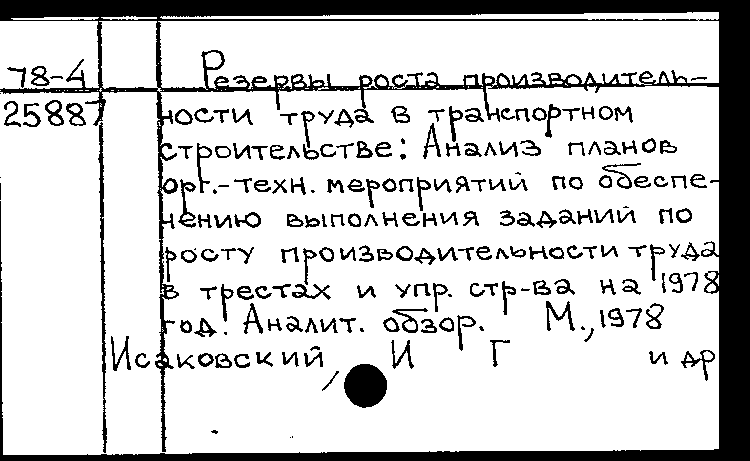 78-4 Резервы роста производитель-
25887 ности труда в транспортном
строительстве: Анализ планов
орг.-техн. мероприятий по обеспе-
чению выполнения заданий по
росту производительности труда
в трестах и упр. стр-ва на 1978
год. Аналит. обзор. М., 1978
Исаковский, И Г и др